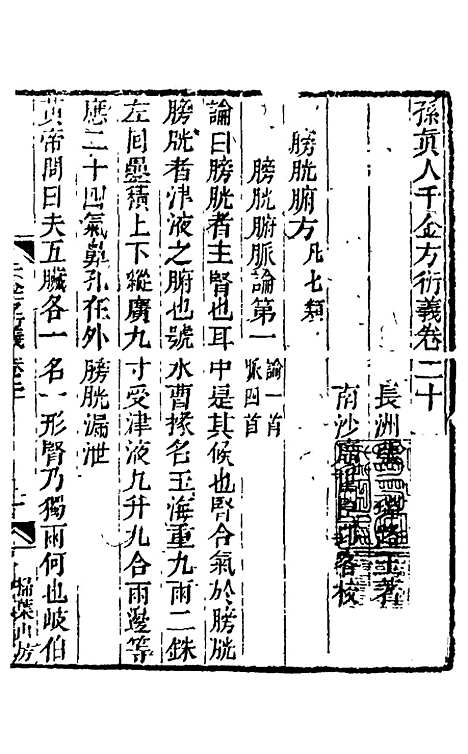 孫眞人千金方衍義卷二十
長洲張璐路玉著
南沙席世臣郢客校
膀胱腑方凡七類
膀胱腑脈論第一論一首脈四首
論曰膀胱者主腎也耳中是其候也腎合氣於膀胱
膀胱者津液之腑也號水曹掾名玉海重九兩二銖
左囘疊積上下縱廣九寸受津液九升九合兩邊等
應二十四氣鼻孔在外膀胱漏泄
黃帝問曰夫五臟各一名一形腎乃獨兩何也岐伯
千金方衍義 卷二十
一
掃葉山房